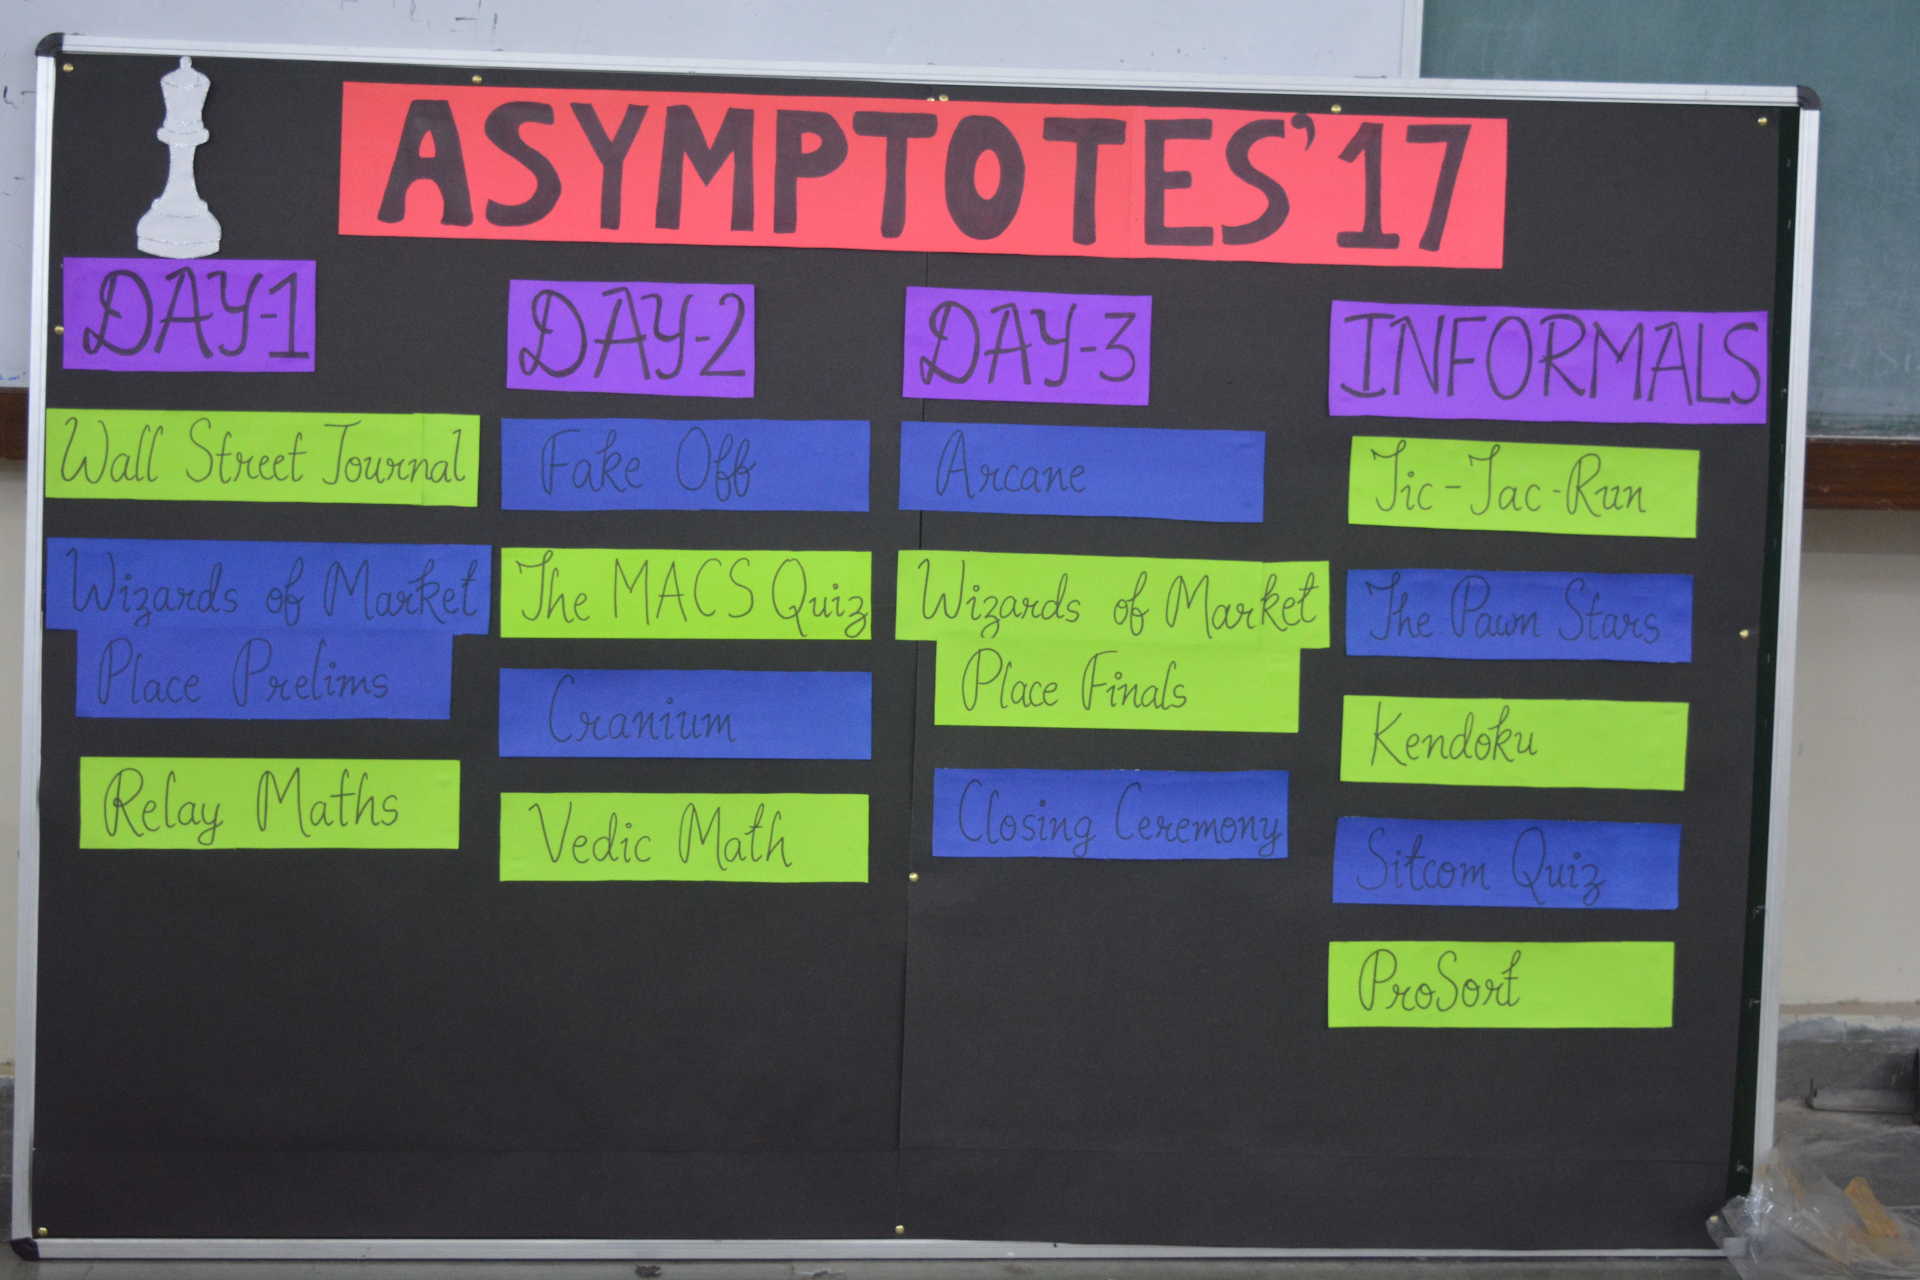 ASYMPTOTES'17
DAY-1
Wall Street Journal
Wizards of Market
Place Prelims
Relay Maths
DAY-2
Fake Off
The MACS Quiz
Cranium
Vedic Math
DAY-3
Arcane
Wizards of Market
Place Finals
Closing Ceremony
INFORMALS
Tic-Tac-Run
The Pawn Stars
Kendoku
Sitcom Quiz
ProSort